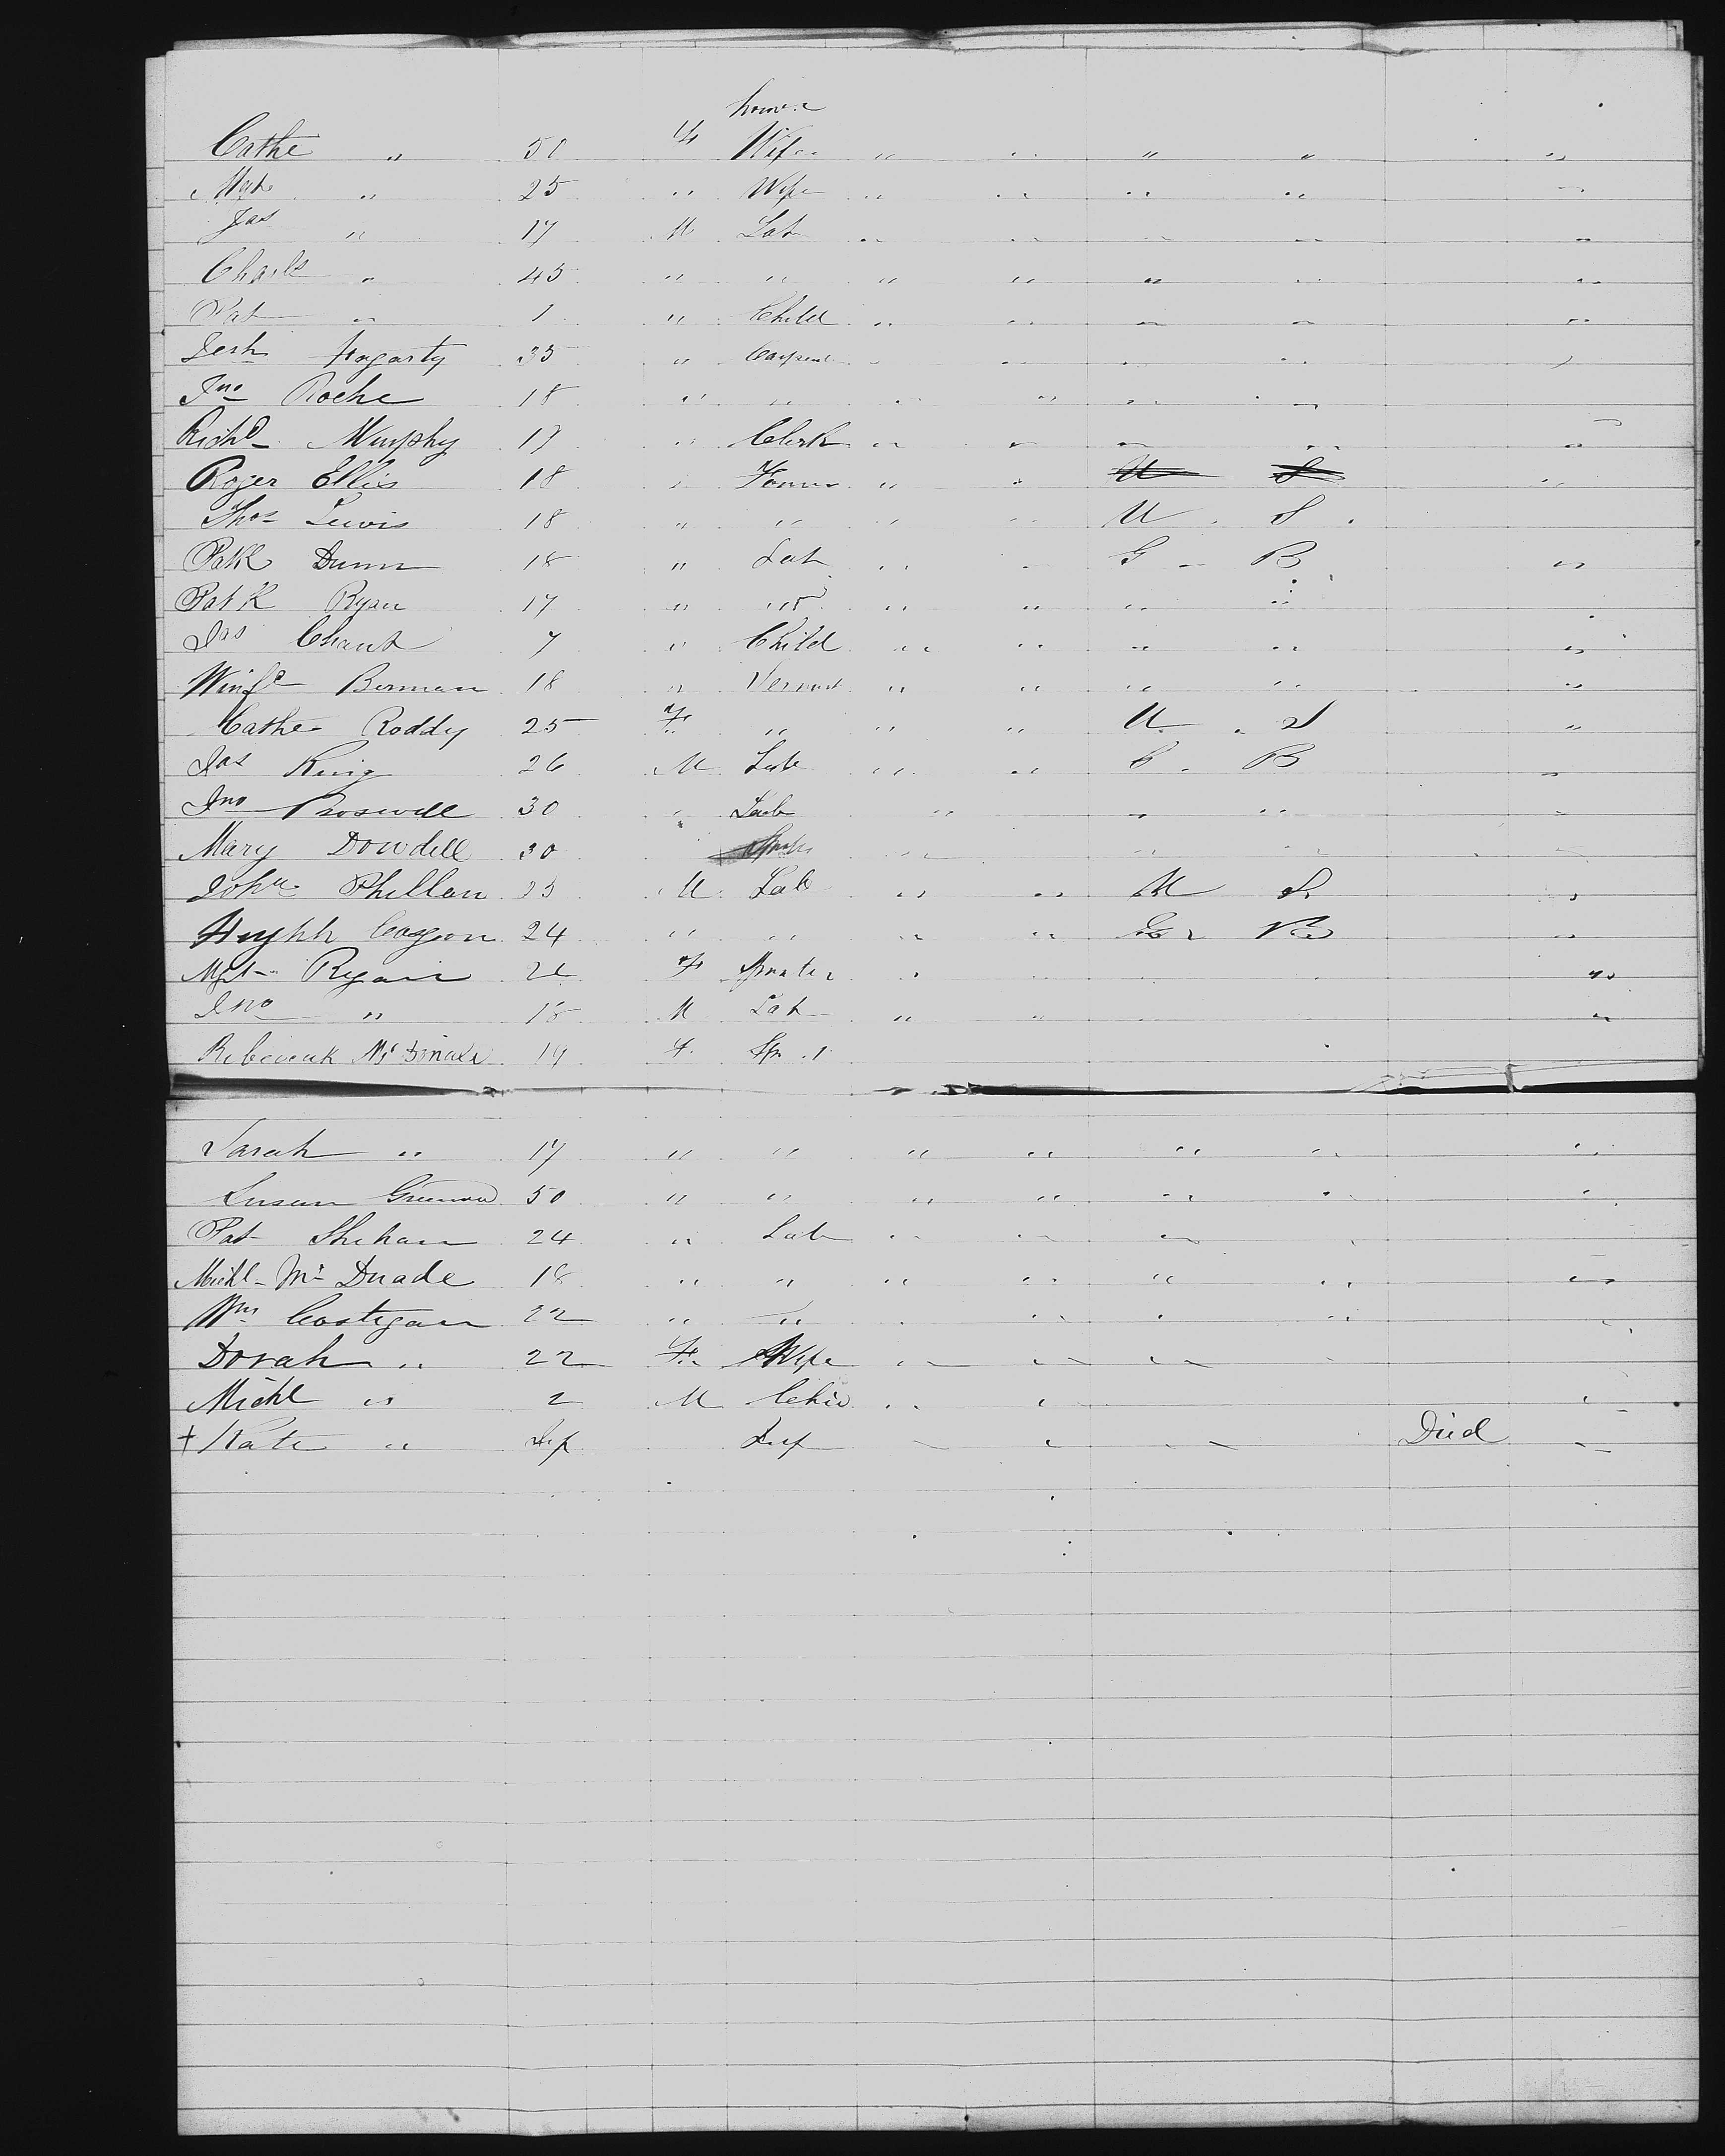 Cathe " 50 Wife " " " " "
Mgt " 25 " Wife " " " " "
Jas " 17 M Lab " " " " "
Charls " 45 " " " " " " "
Pat " 1 " Child " " " " "
Jerh Hogarty 35 " Carpent " " " "
Jno Roche 18 " " " " " "
Richd Murphy 19 " Clerk " " " " "
Roger Ellis 18 " Farmer " " U S "
Thos Lewis 18 " " " " U. S.
Patk Dunn 18 " Lab " " G - B "
Patk Ryan 17 " " " " " "
Jas Chant 7 " Child " " " " "
Winfd 18 " " " " " "
Cathe Roddy 25 F " " " U. S "
Jas King 26 M Lab " " G. B "
Jno 30 " Lab " " "
Mary Dowdell 30 " " "
John Phillan 25 M Lab " " U S "
Hughh 24 " " " " G B "
Mgt Ryan F Spinster "
Jno " 18 M Lab " " "
19 F Spr
Sarah " 17 " " " " " " "
Susan 50 " " " " " " "
Pat Shehan 24 " Lab " " "
Michl Mc Duade 18 " " " " " " "
Wm Costigan 22 " " " " "
Dorah " 22 F Wife " " "
Michl " 2 M Chid " "
+ Kate " Inf Inf " " " Died "